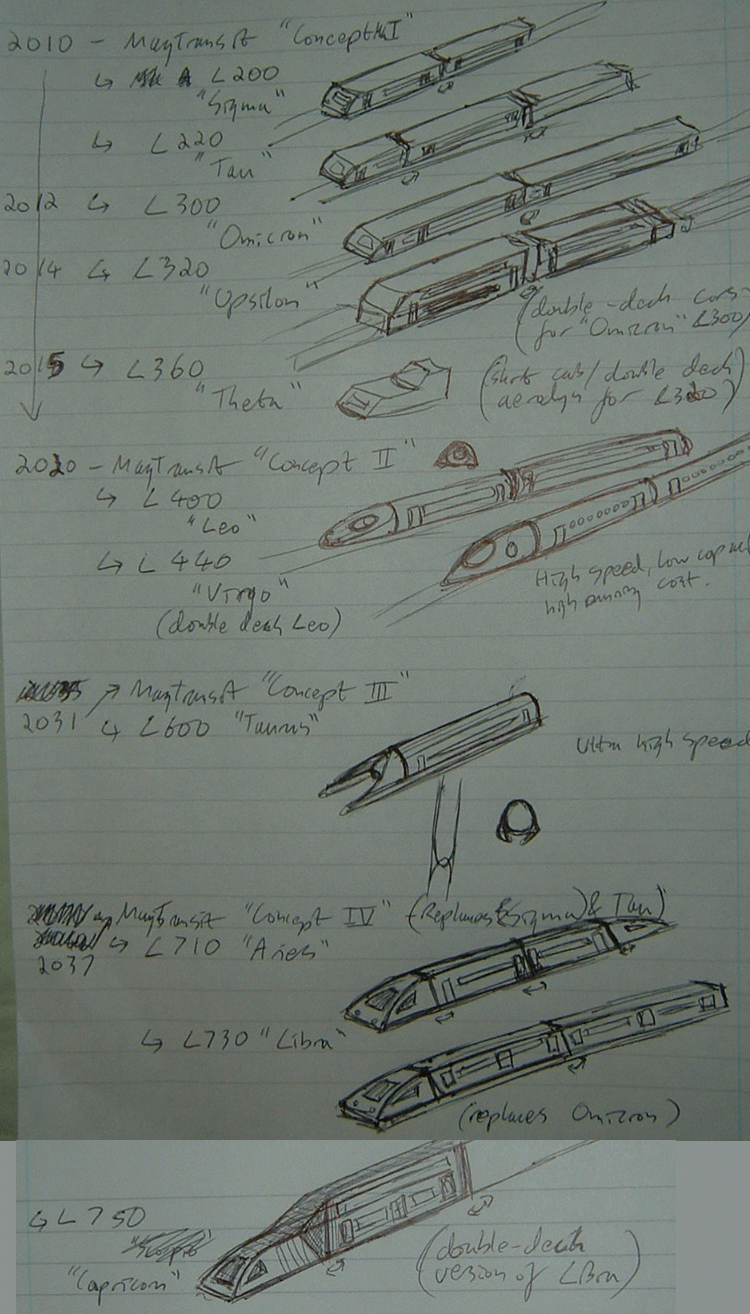 2010 - MagTransit "Concept I"
↳ L200
"Sigma"
↳ L220
"Tau"
2012 ↳ L300
"Omicron"
2014 ↳ L320
"Upsilon"
(double-deck cars
for "Omicron" L300)
2015 ↳ L360
"Theta"
(short cab/double deck
for L320)
2020 - MagTransit "Concept II"
↳ L400
"Leo"
↳ L440
"Virgo"
(double deck Leo)
High speed, low
high running cost.
MagTransit "Concept III"
2031 ↳ L600 "Taurus"
Ultra high speed
MagTransit "Concept IV" (Replaces Sigma & Tau)
↳ L710 "Aries"
2037
↳ L730 "Libra"
(replaces Omicron)
↳ L750
"Capricorn"
(double-deck
version of Libra)